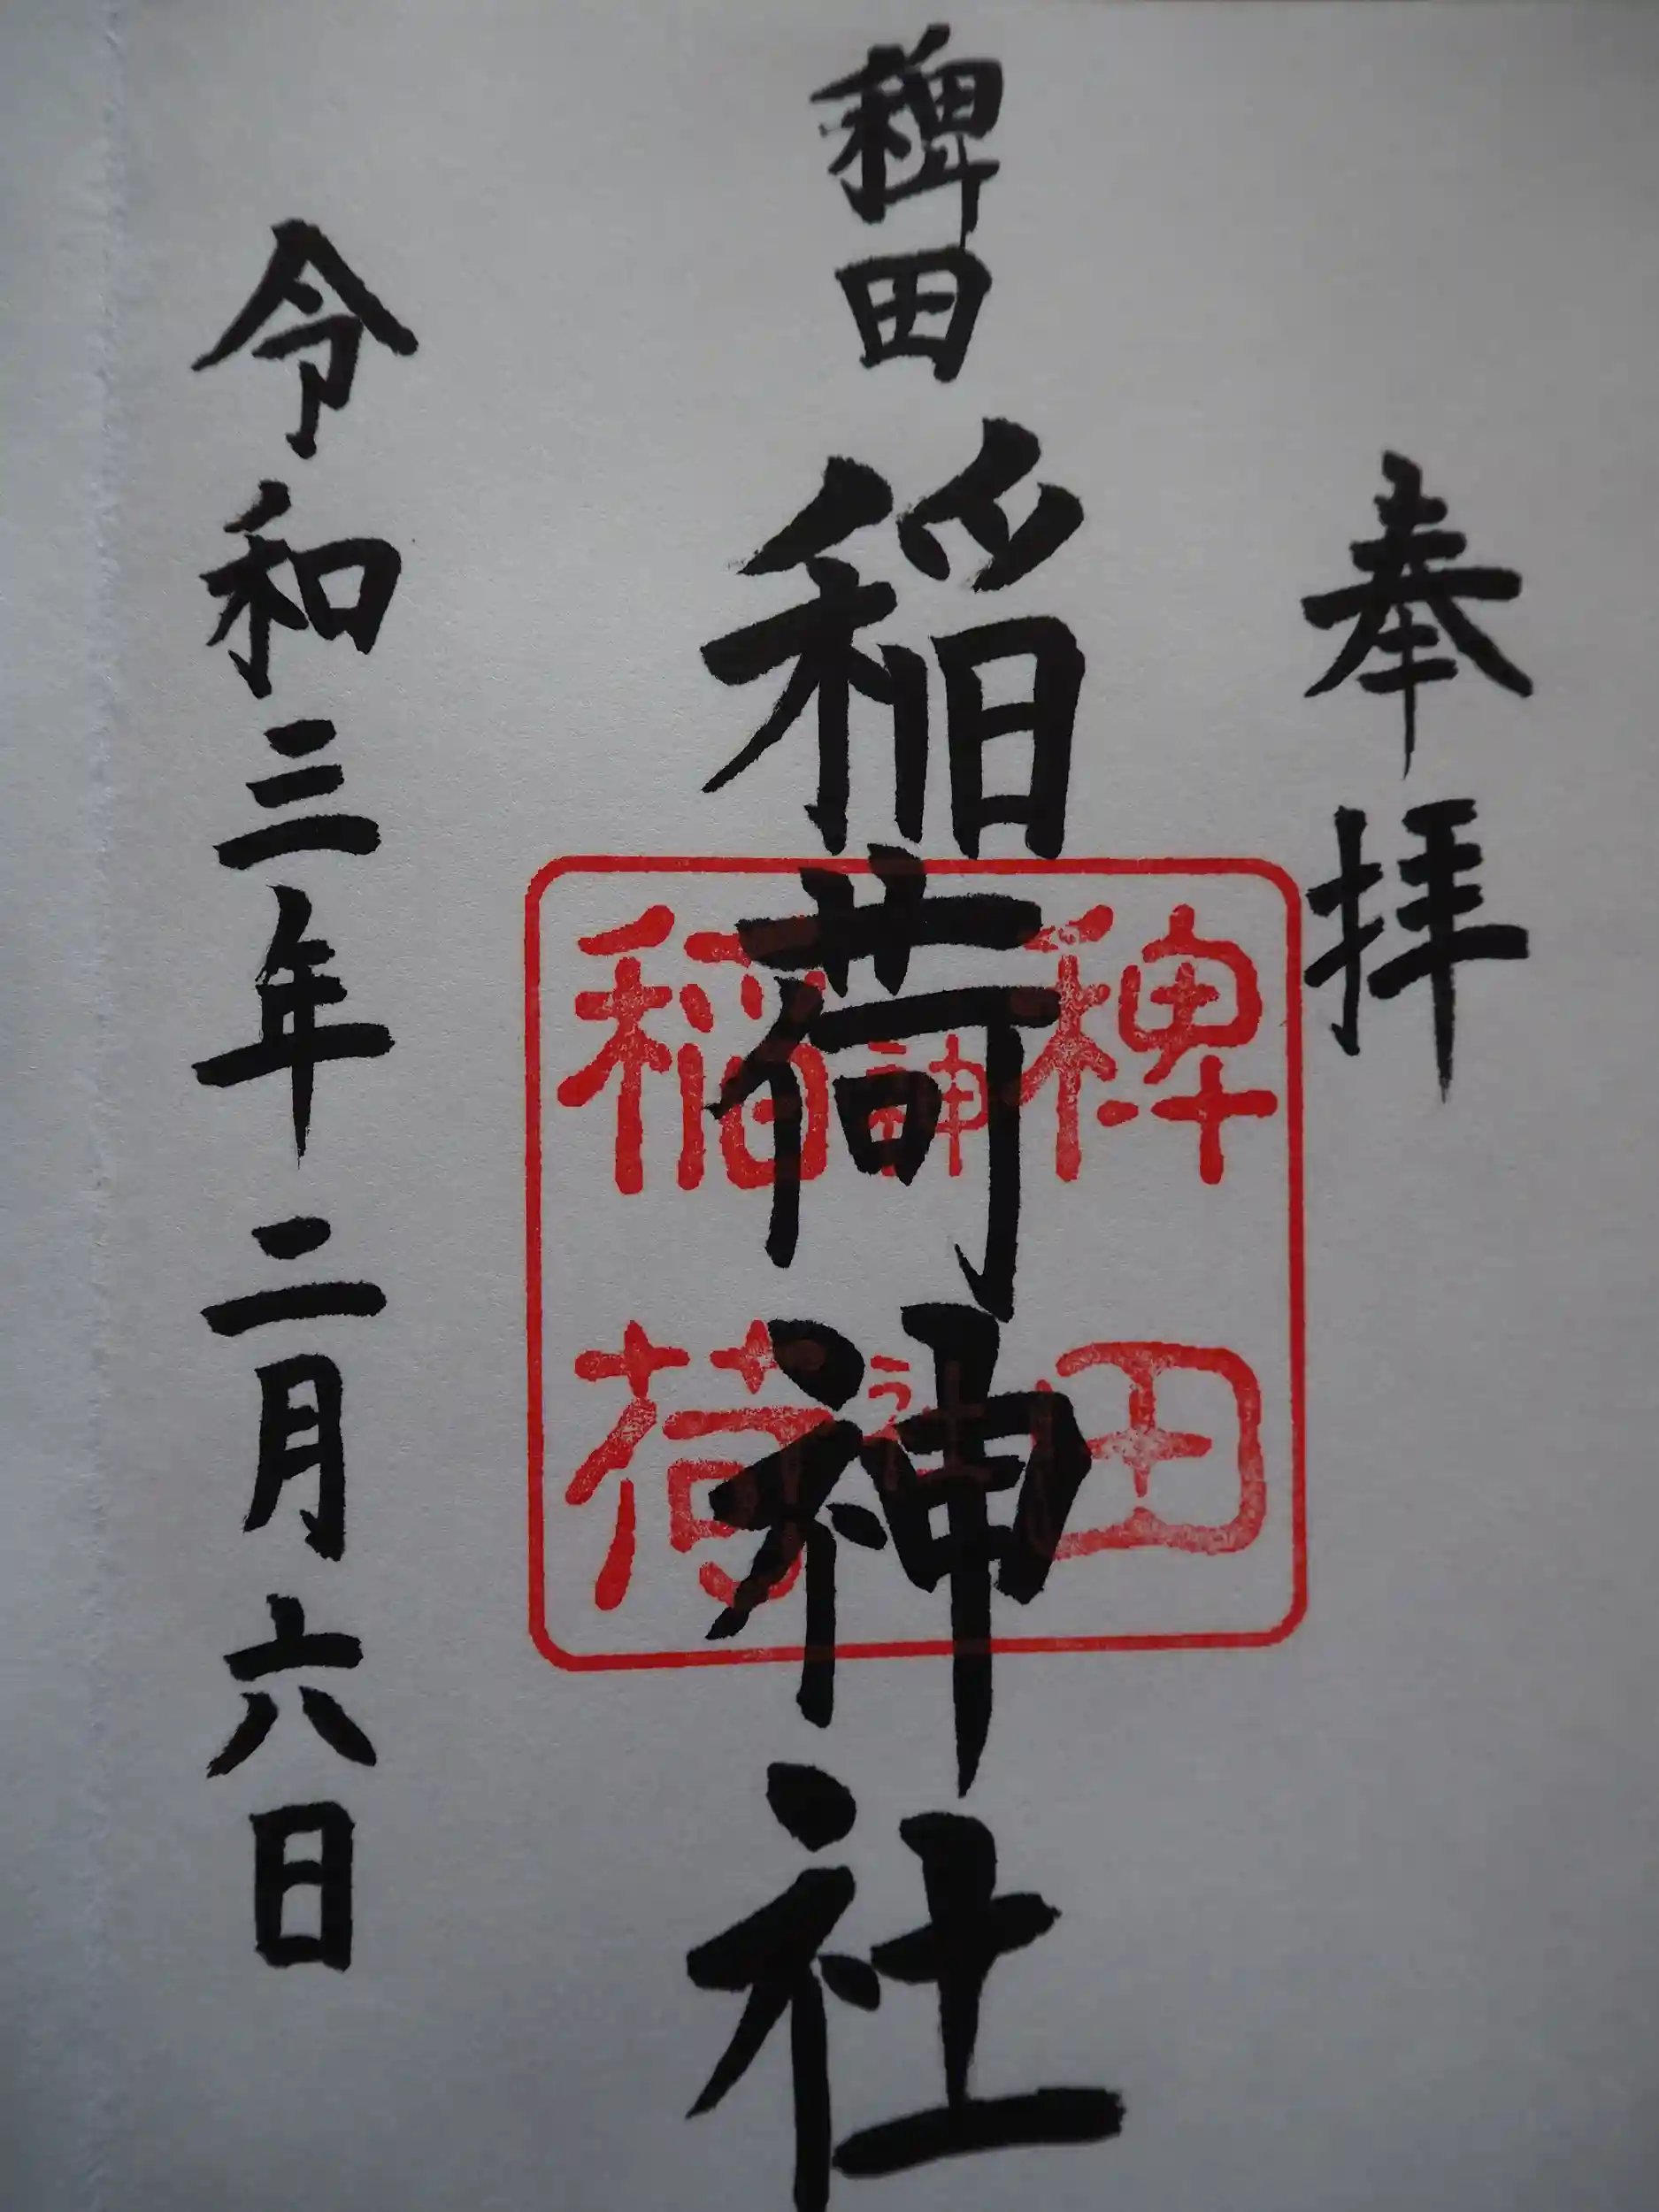 奉拝
稗田稲荷神社
稗田
神社
稲荷
令和三年二月六日